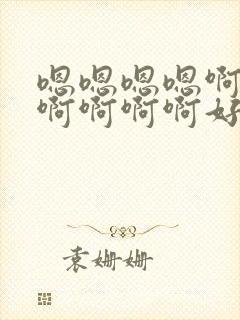 嗯嗯嗯嗯啊
啊啊啊啊好
袁姗姗